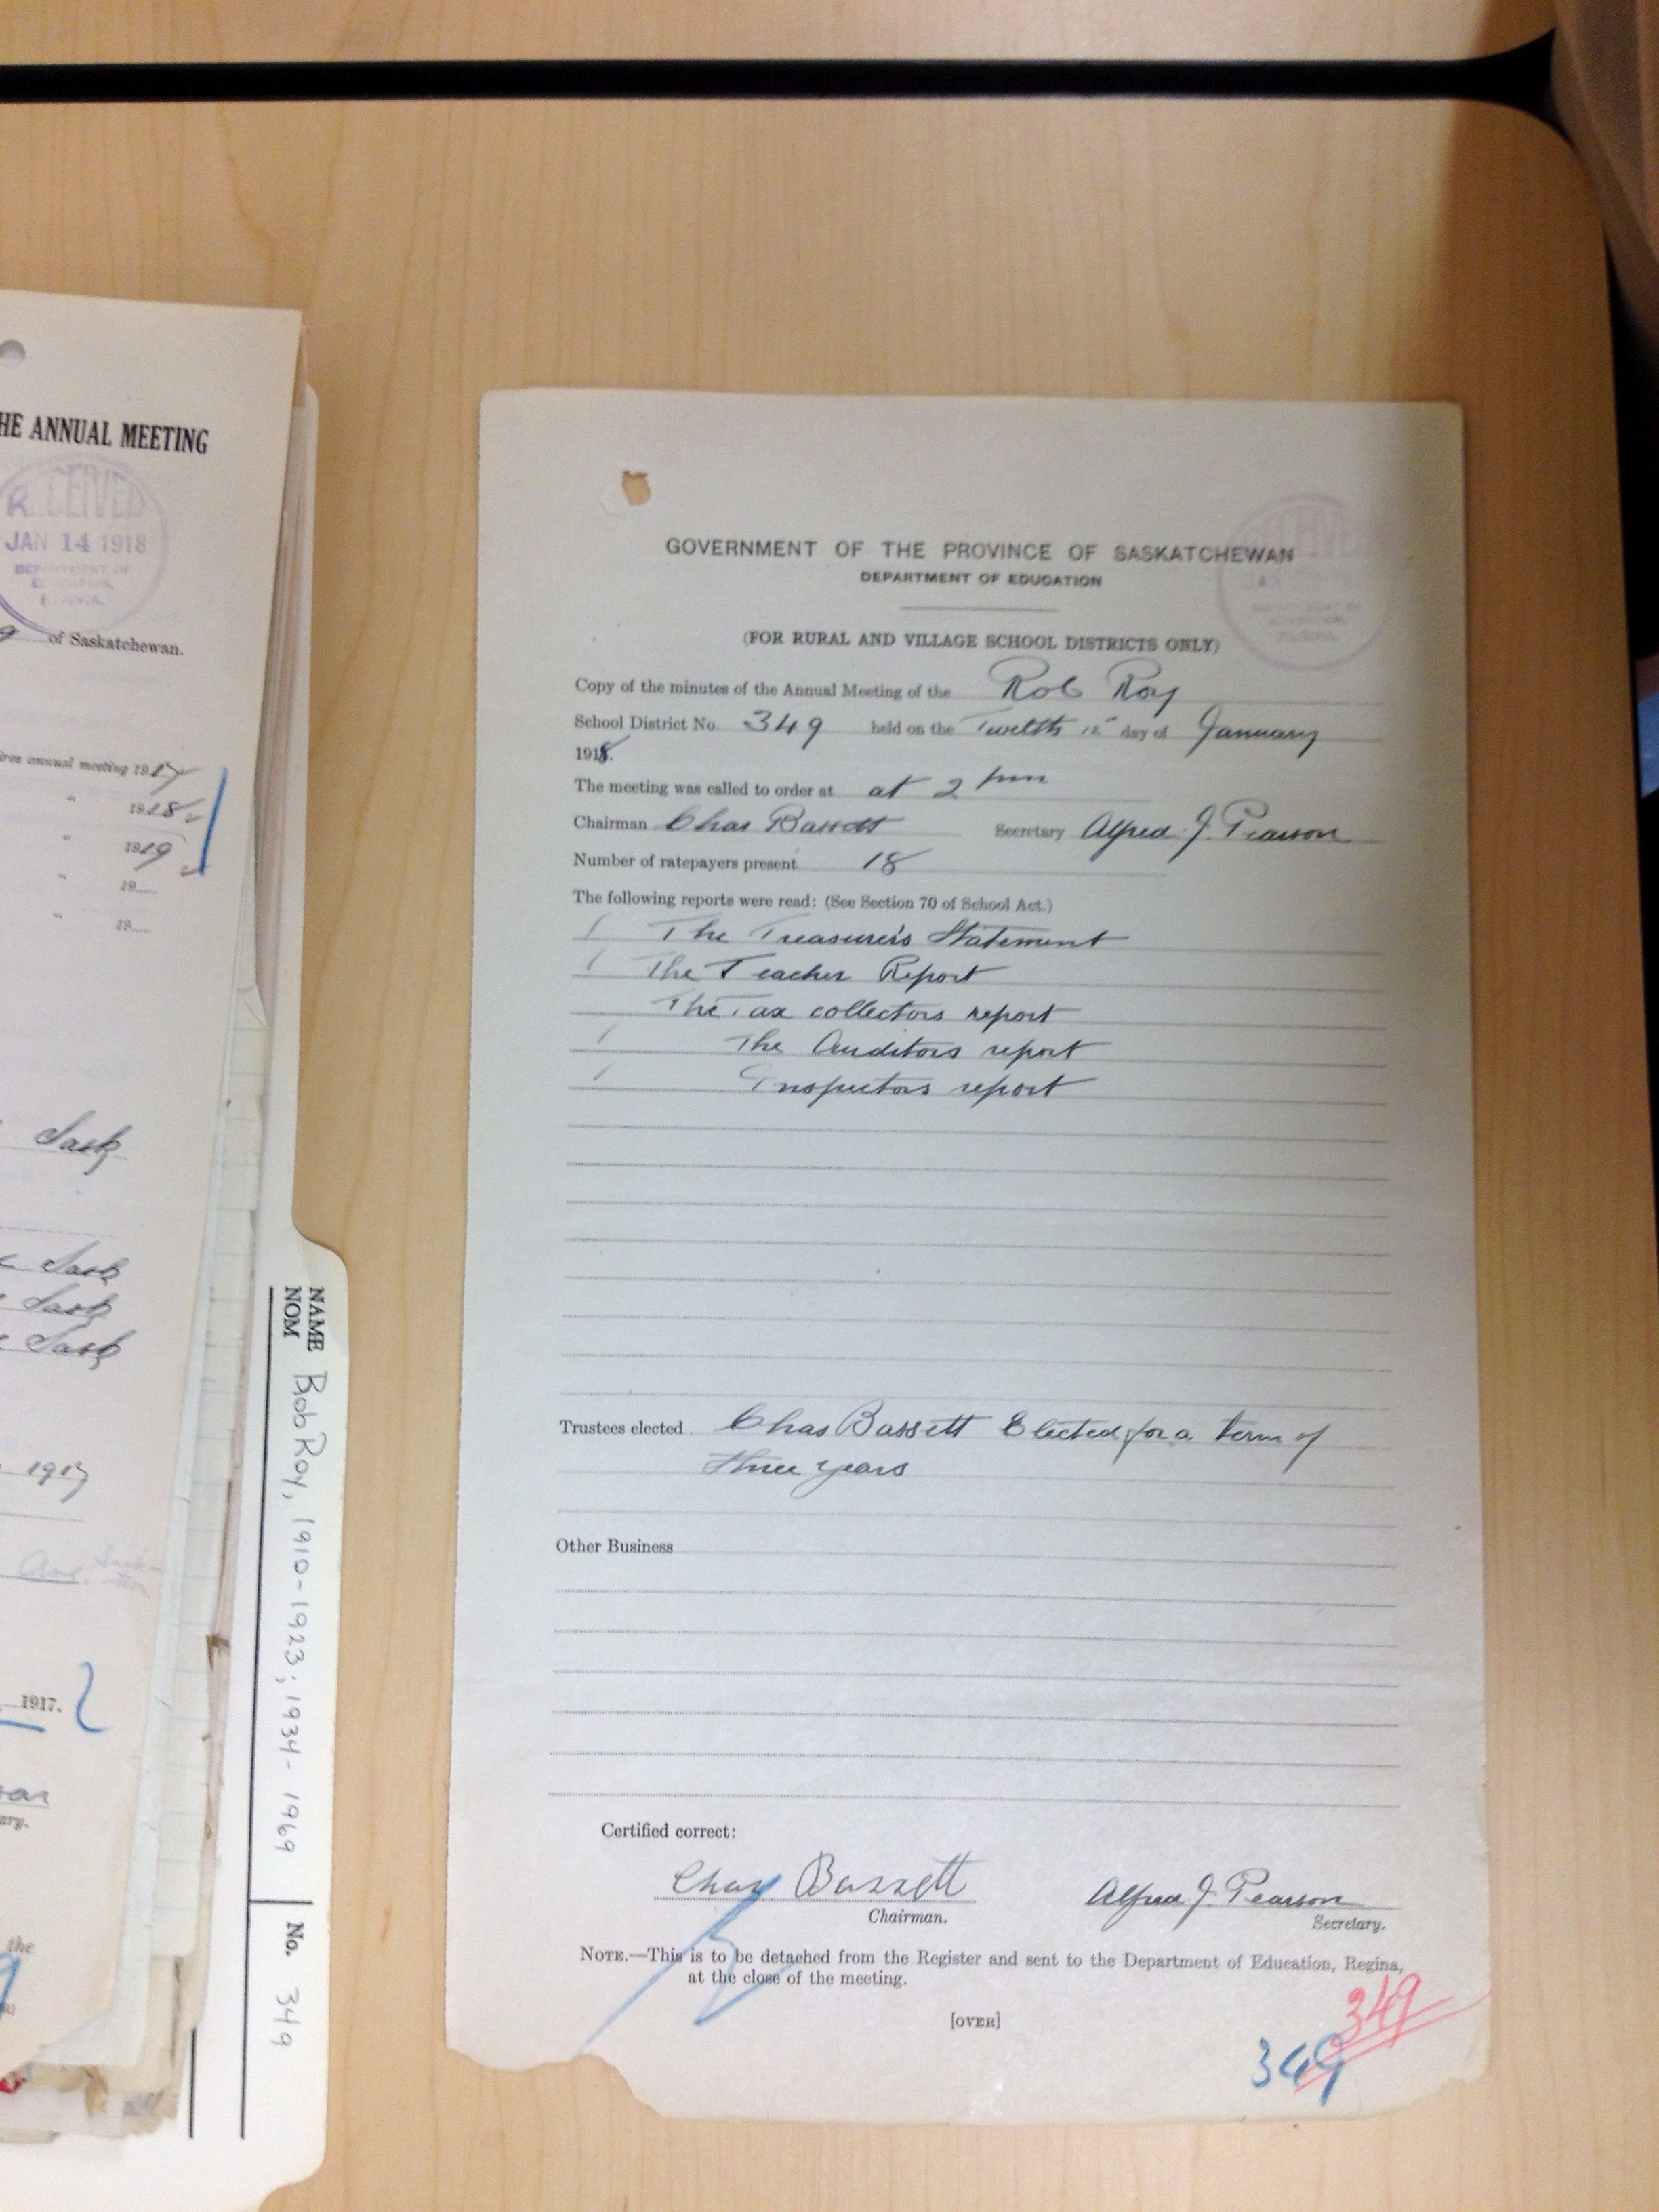 HE ANNUAL MEETING
RECEIVED
JAN 14 1918
DEPARTMENT OF
EDUCATION,
REGINA.
9 of Saskatchewan.
ires annual meeting 1917
" 1918
" 1919
" 19
" 19
Sask
Sask
Sask
Sask
1917
Ave.
1917.
ary.
the
NAME
NOM
Bob Roy, 1910-1923; 1934-1969
No. 349
GOVERNMENT OF THE PROVINCE OF SASKATCHEWAN
DEPARTMENT OF EDUCATION
RECEIVED
JAN
DEPARTMENT OF
EDUCATION,
REGINA.
(FOR RURAL AND VILLAGE SCHOOL DISTRICTS ONLY)
Copy of the minutes of the Annual Meeting of the Rob Roy
School District No. 349 held on the Twelth 12" day of January
1918.
The meeting was called to order at at 2 pm
Chairman Chas Bassett Secretary Alfred J. Pearson
Number of ratepayers present 18
The following reports were read: (See Section 70 of School Act.)
The Treasurer's Statement
The Teacher Report
The Tax collectors report
The Auditors report
Inspectors report
Trustees elected Chas Bassett Elected for a term of
three years
Other Business
Certified correct:
Chas Bassett Alfred J. Pearson
Chairman. Secretary.
NOTE.—This is to be detached from the Register and sent to the Department of Education, Regina,
at the close of the meeting.
[OVER]
349
349